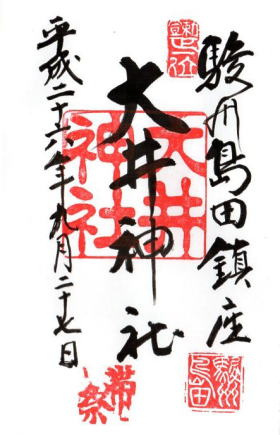 駿州島田鎮座
大井神社
平成二十六年九月二十七日
大井
神社
帯
祭